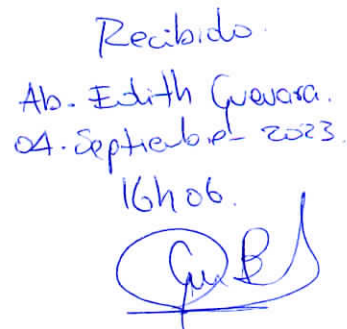 Recibido.
Ab. Edith Guevara.
04. Septiembre 2023.
16h06.